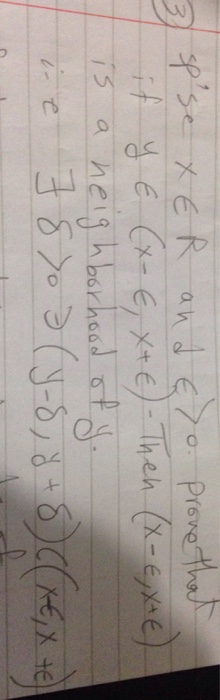 ③ S'pse x ∈ R and ϵ>0. prove that
if y ∈ (x-ϵ, x+ϵ). Then (x-ϵ, x+ϵ)
is a neighborhood of y.
i.e ∃ δ>0 ∋ (y-δ, y+δ)⊂(x-ϵ, x+ϵ)